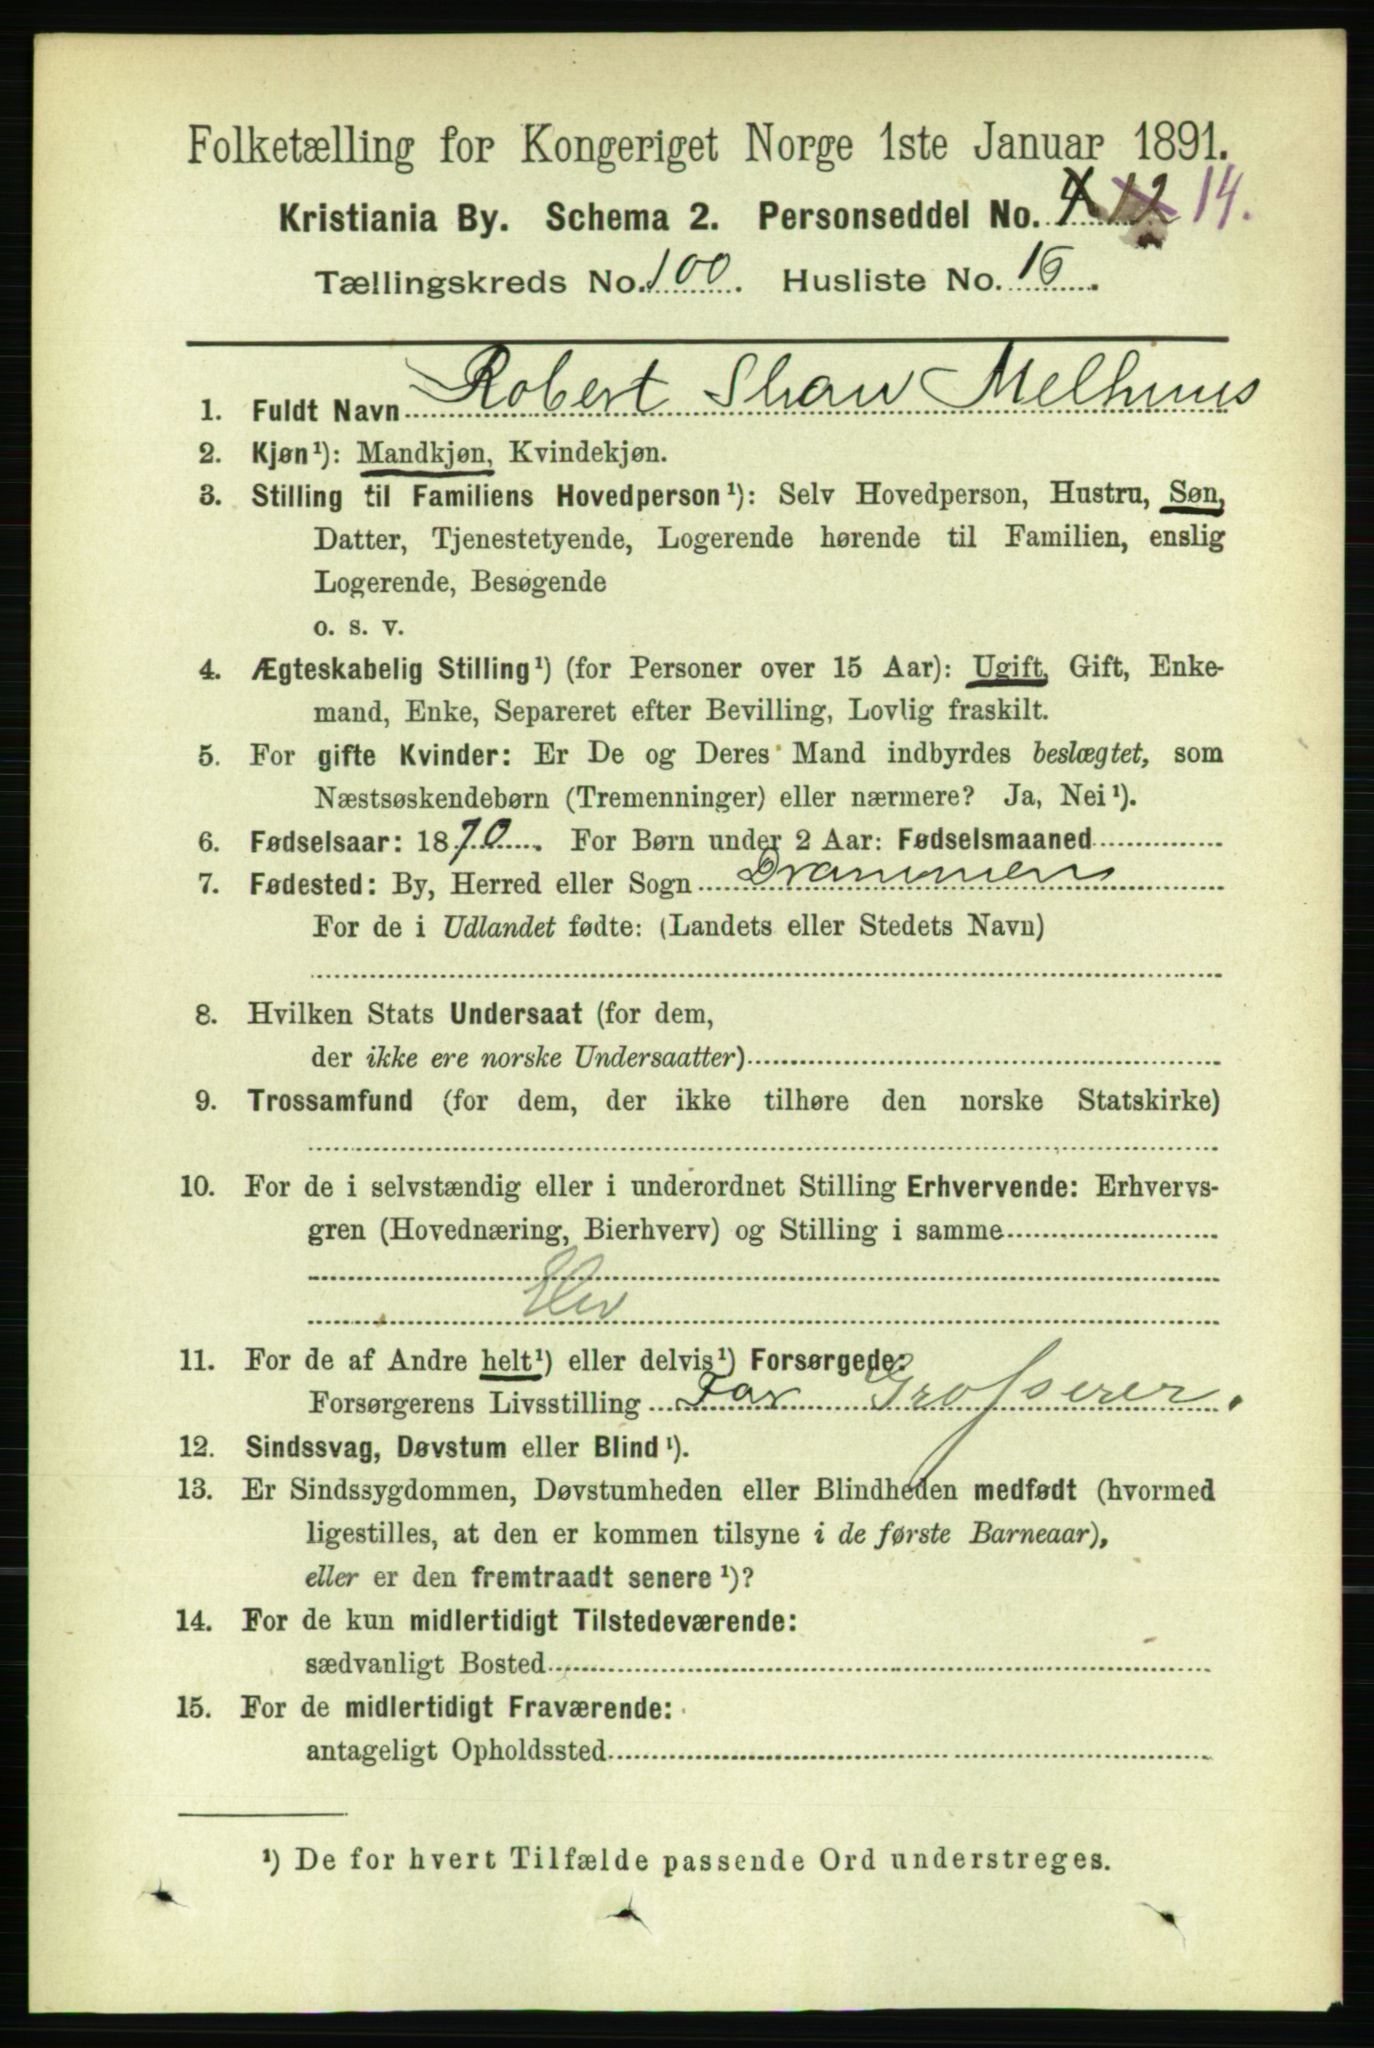 Folketælling for Kongeriget Norge 1ste Januar 1891.
Kristiania By. Schema 2. Personseddel No. 4 12 14.
Tællingskreds No. 100. Husliste No. 16.
1. Fuldt Navn Robert Shaw Melhuus
2. Kjøn¹): Mandkjøn, Kvindekjøn.
3. Stilling til Familiens Hovedperson¹): Selv Hovedperson, Hustru, Søn,
Datter, Tjenestetyende, Logerende hørende til Familien, enslig
Logerende, Besøgende
o. s. v.
4. Ægteskabelig Stilling¹) (for Personer over 15 Aar): Ugift, Gift, Enke-
mand, Enke, Separeret efter Bevilling, Lovlig fraskilt.
5. For gifte Kvinder: Er De og Deres Mand indbyrdes beslægtet, som
Næstsøskendebørn (Tremenninger) eller nærmere? Ja, Nei¹).
6. Fødselsaar: 1870. For Børn under 2 Aar: Fødselsmaaned
7. Fødested: By, Herred eller Sogn Drammen
For de i Udlandet fødte: (Landets eller Stedets Navn)
8. Hvilken Stats Undersaat (for dem,
der ikke ere norske Undersaatter)
9. Trossamfund (for dem, der ikke tilhøre den norske Statskirke)
10. For de i selvstændig eller i underordnet Stilling Erhvervende: Erhvervs-
gren (Hovednæring, Bierhverv) og Stilling i samme
Elev
11. For de af Andre helt¹) eller delvis¹) Forsørgede:
Forsørgerens Livsstilling Far Grosserer.
12. Sindssvag, Døvstum eller Blind¹).
13. Er Sindssygdommen, Døvstumheden eller Blindheden medfødt (hvormed
ligestilles, at den er kommen tilsyne i de første Barneaar),
eller er den fremtraadt senere¹)?
14. For de kun midlertidigt Tilstedeværende:
sædvanligt Bosted
15. For de midlertidigt Fraværende:
antageligt Opholdssted
¹) De for hvert Tilfælde passende Ord understreges.